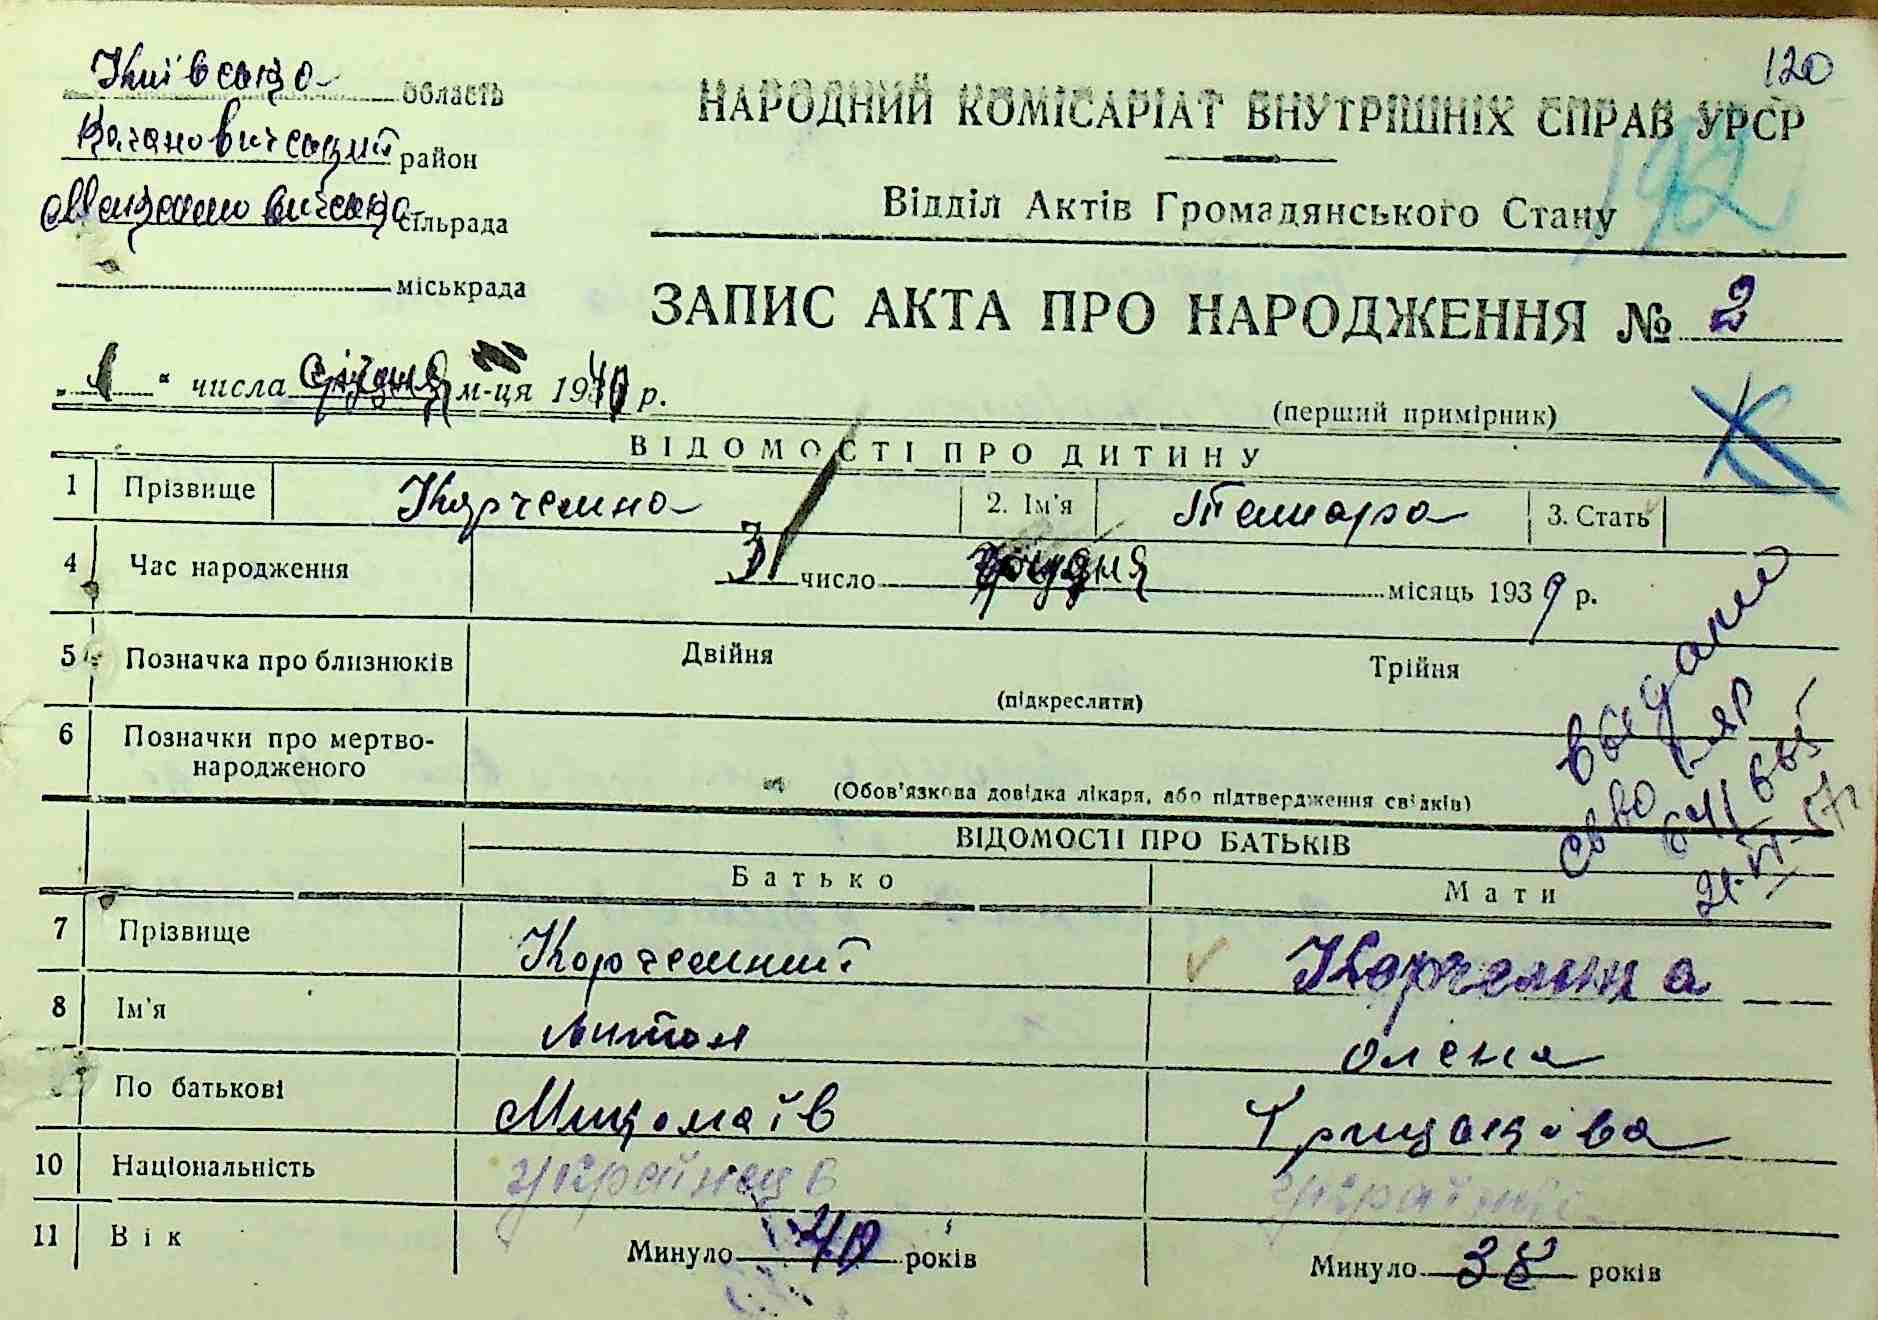 120
Київська область
Кагановичський район
сільрада
міськрада
НАРОДНИЙ КОМІСАРІАТ ВНУТРІШНІХ СПРАВ УРСР
192
Відділ Актів Громадянського Стану
ЗАПИС АКТА ПРО НАРОДЖЕННЯ № 2
„1“ числа січня м-ця 1940 р.
(перший примірник)
ВІДОМОСТІ ПРО ДИТИНУ
1 Прізвище Корчемна 2. Ім'я Тамара 3. Стать
4 Час народження 31 число грудня місяць 1939 р.
5 Позначка про близнюків Двійня Трійня
(підкреслити)
6 Позначки про мертво-
народженого
(Обов'язкова довідка лікаря, або підтвердження свідків)
выдано
ВІДОМОСТІ ПРО БАТЬКІВ
Батько Мати
7 Прізвище Корчемний Корчемна
8 Ім'я Антон Олена
По батькові Миколаїв
10 Національність українець
11 Вік Минуло 40 років Минуло 38 років